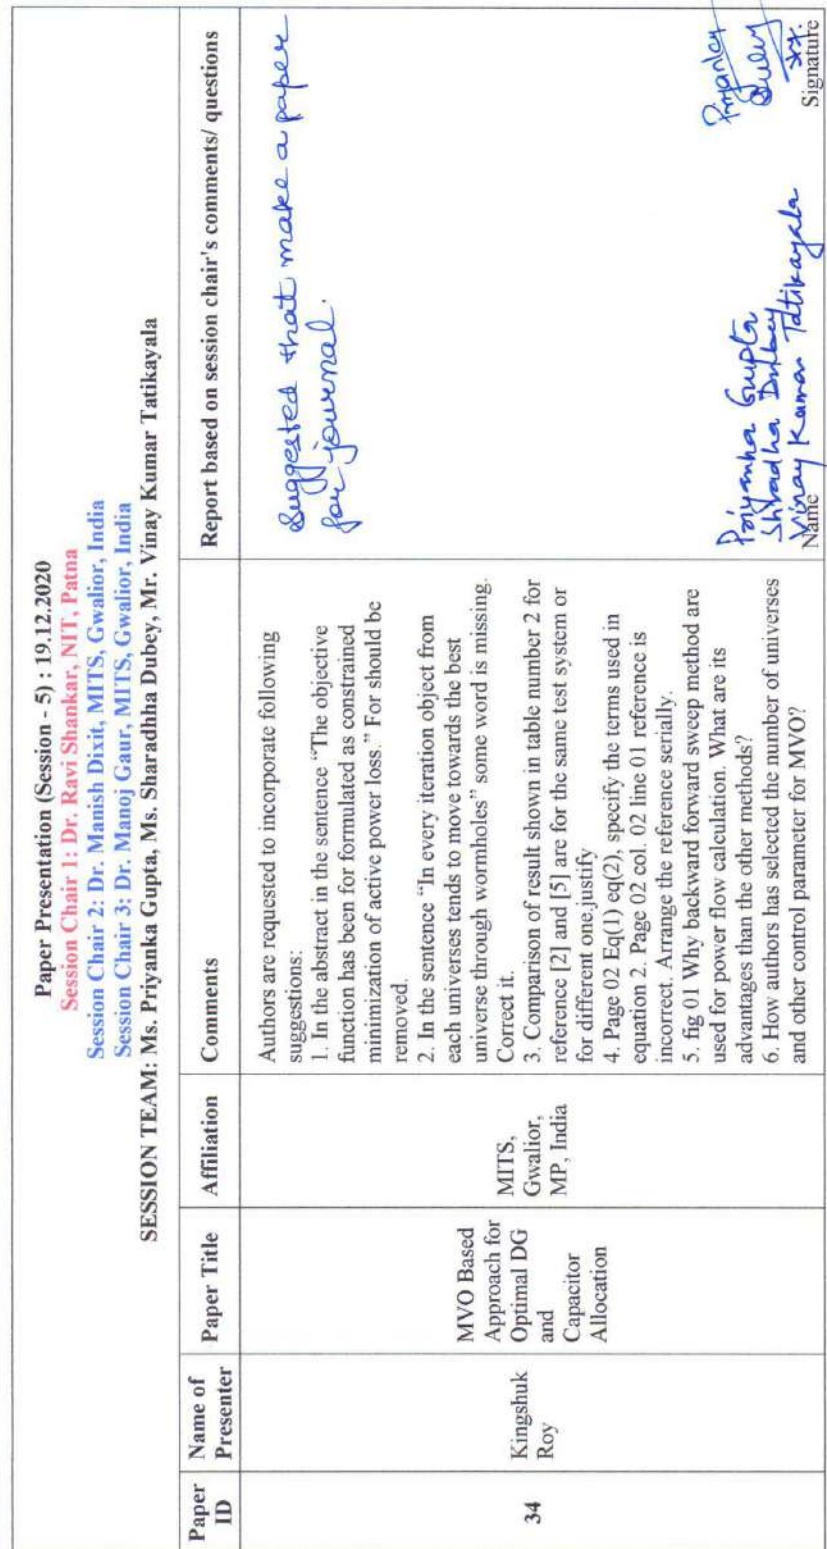 Paper Presentation (Session - 5) : 19.12.2020
Session Chair 1: Dr. Ravi Shankar, NIT, Patna
Session Chair 2: Dr. Manish Dixit, MITS, Gwalior, India
Session Chair 3: Dr. Manoj Gaur, MITS, Gwalior, India
SESSION TEAM: Ms. Priyanka Gupta, Ms. Sharadhha Dubey, Mr. Vinay Kumar Tatikayala
Paper
ID
Name of
Presenter
Paper Title
Affiliation
Comments
Report based on session chair's comments/ questions
34
Kingshuk
Roy
MVO Based
Approach for
Optimal DG
and
Capacitor
Allocation
MITS,
Gwalior,
MP, India
Authors are requested to incorporate following
suggestions:
1. In the abstract in the sentence “The objective
function has been for formulated as constrained
minimization of active power loss.” For should be
removed.
2. In the sentence “In every iteration object from
each universes tends to move towards the best
universe through wormholes” some word is missing.
Correct it.
3. Comparison of result shown in table number 2 for
reference [2] and [5] are for the same test system or
for different one.justify
4. Page 02 Eq(1) eq(2), specify the terms used in
equation 2. Page 02 col. 02 line 01 reference is
incorrect. Arrange the reference serially.
5. fig 01 Why backward forward sweep method are
used for power flow calculation. What are its
advantages than the other methods?
6. How authors has selected the number of universes
and other control parameter for MVO?
Suggested that make a paper
for journal.
Priyanka Gupta
Shradha Dubey
Vinay Kumar Tatikayala
Name
Priyanka
Dubey
Signature